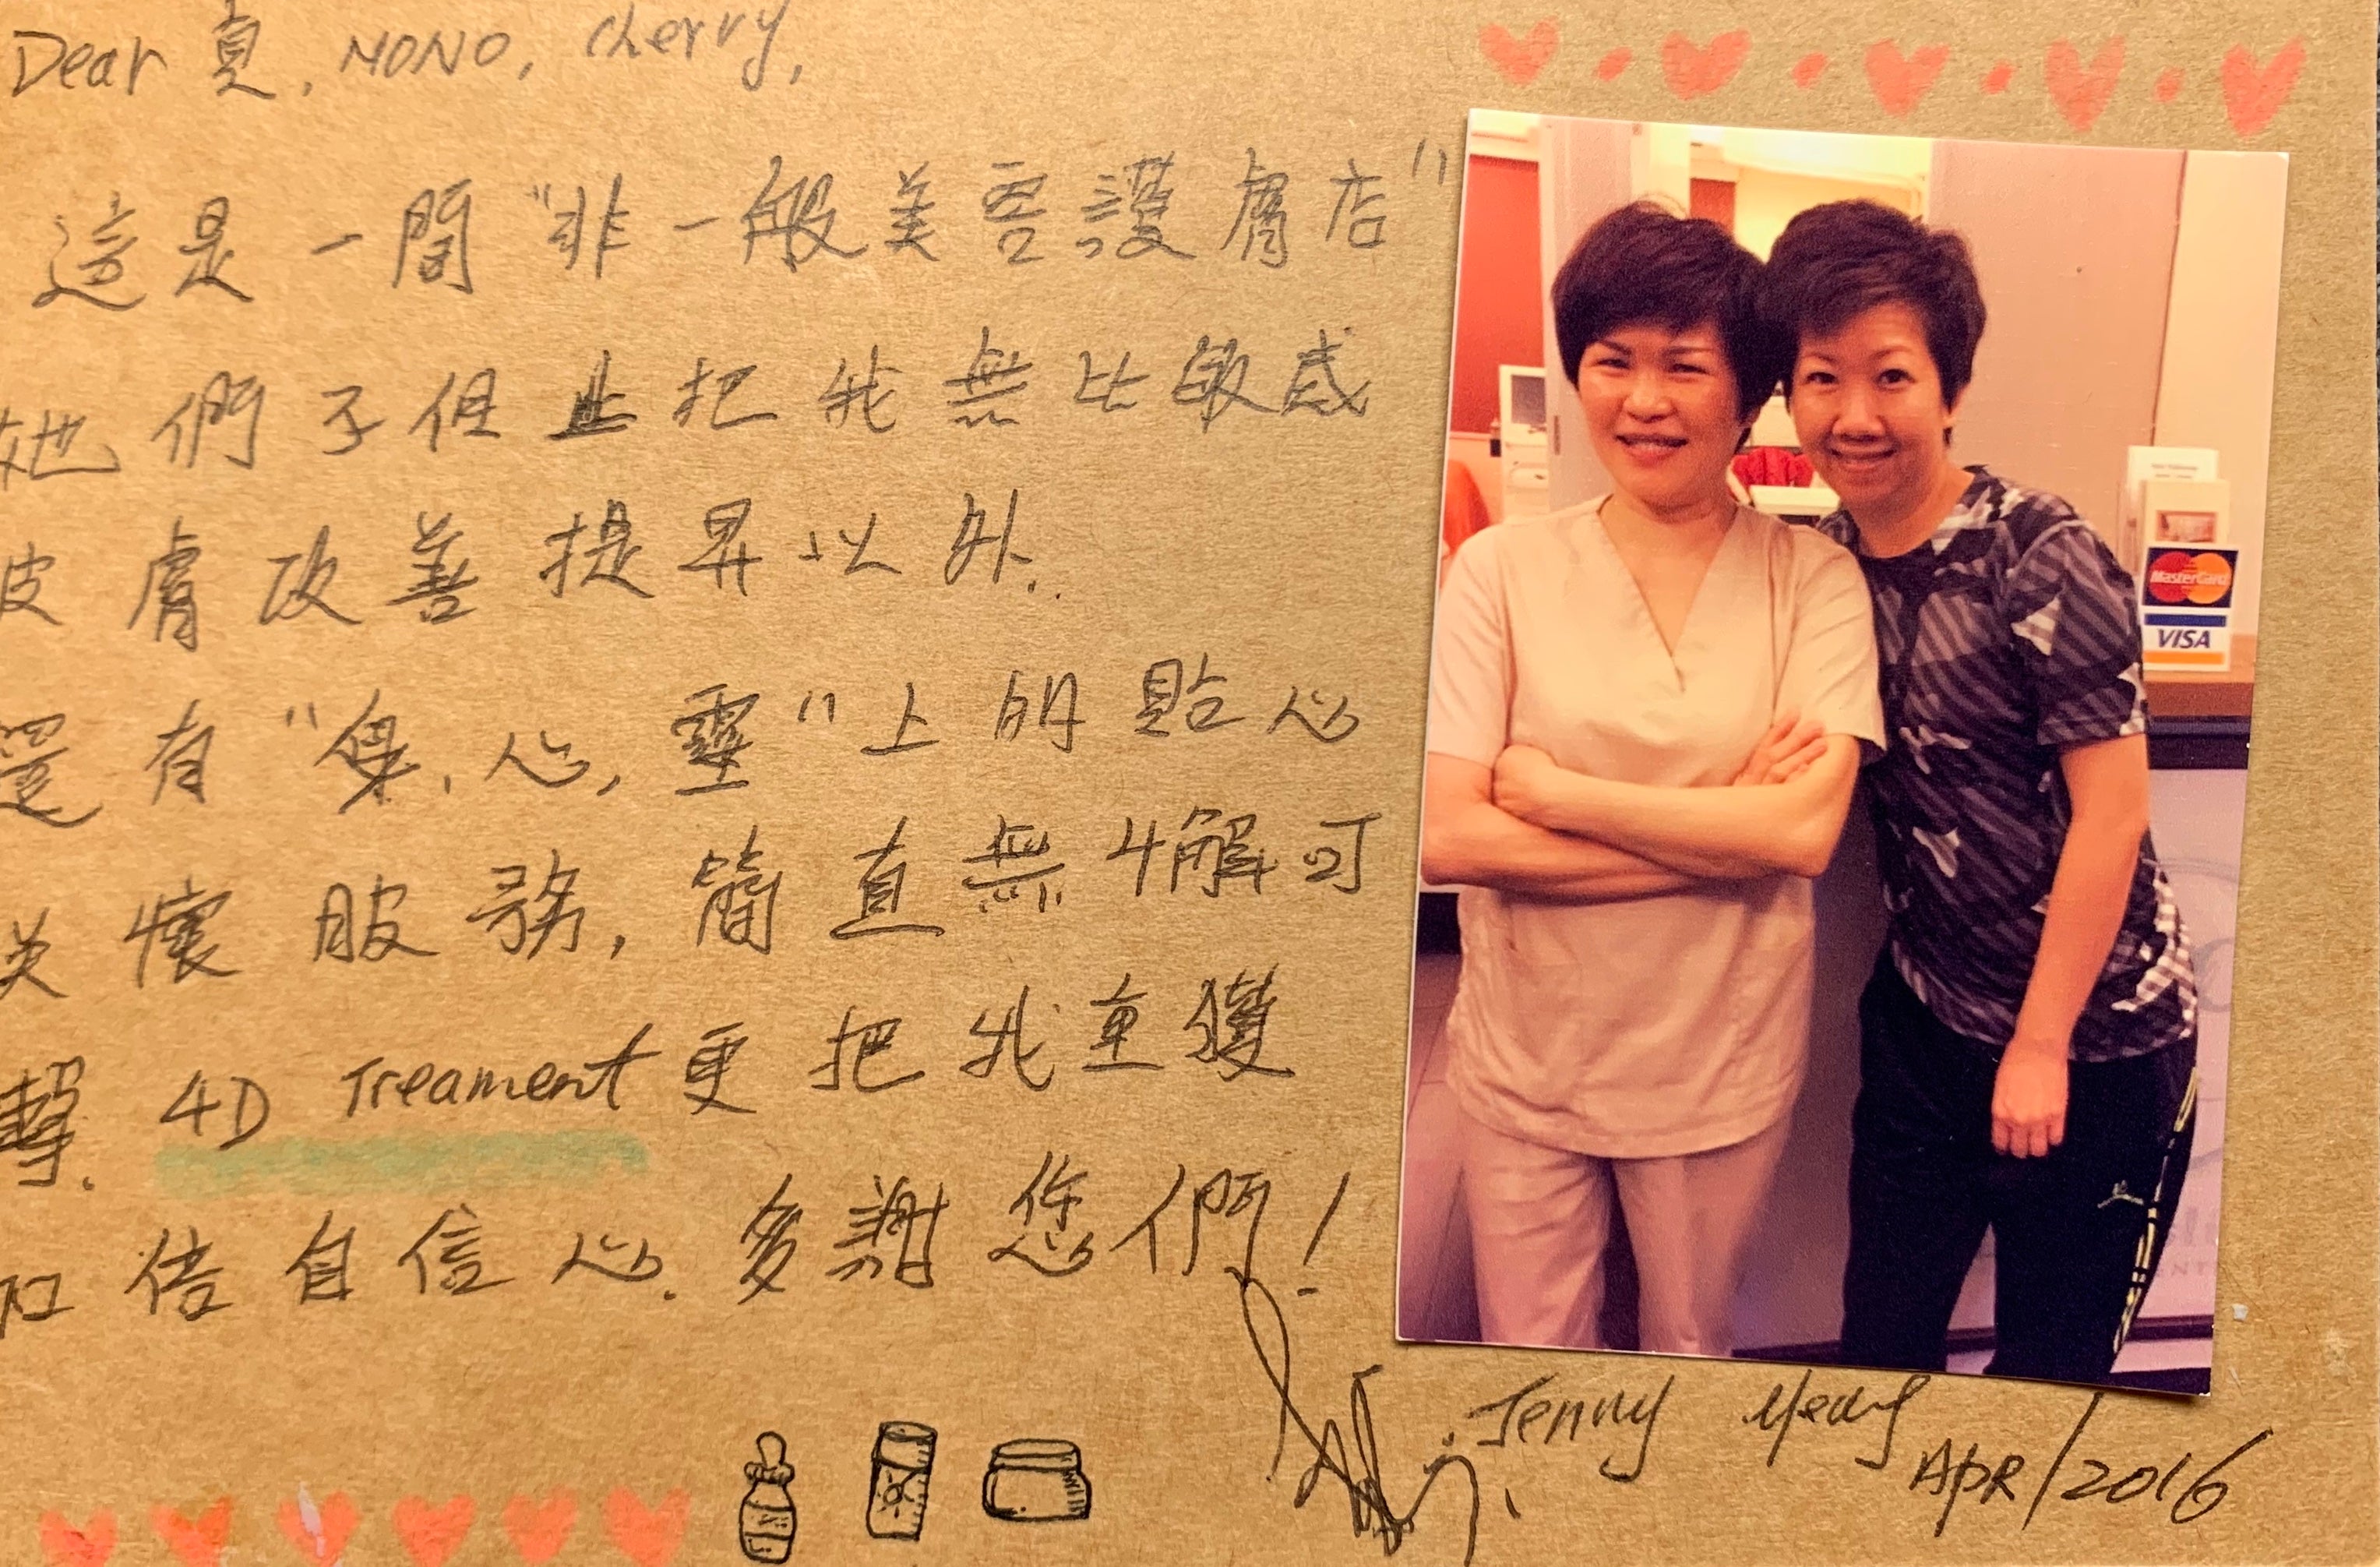 Dear 夏, MONO, Cherry,
這是一間"非一般美容護膚店"
她們不但止把我無比敏感
皮膚改善提昇以外..
還有"身,心,靈"上的貼心
关懷服務,簡直無懈可
擊. 4D Treament 更把我重獲
加倍自信心. 多謝您們!
Jenny
APR/2016
MasterCard
VISA